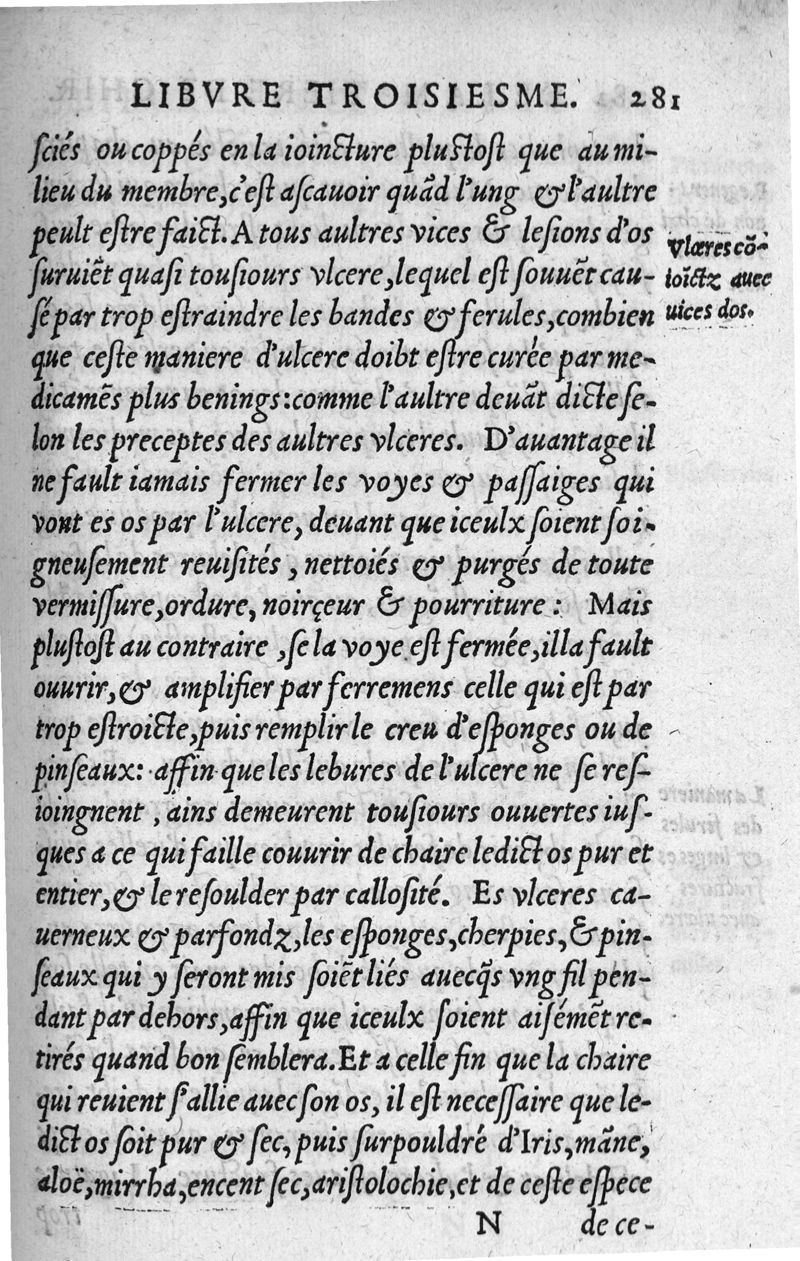 LIBVRE TROISIESME. 281
ſciés ou coppés en la ioincture pluſtoſt que au mi-
lieu du membre, c'eſt aſcauoir quãd l'ung & l'aultre
peult eſtre faict. A tous aultres vices & leſions d'os
ſuruiẽt quaſi touſiours vlcere, lequel eſt ſouuẽt cau-
ſé par trop eſtraindre les bandes & ferules, combien
que ceſte maniere d'ulcere doibt eſtre curée par me-
dicamẽs plus benings: comme l'aultre deuãt dicte ſe-
lon les preceptes des aultres vlceres. D'auantage il
ne fault iamais fermer les voyes & paſſaiges qui
vont es os par l'ulcere, deuant que iceulx ſoient ſoi-
gneuſement reuiſités, nettoiés & purgés de toute
vermiſſure, ordure, noirçeur & pourriture: Mais
pluſtoſt au contraire, ſe la voye eſt fermée, il la fault
ouurir, & amplifier par ferremens celle qui eſt par
trop eſtroicte, puis remplir le creu d'eſponges ou de
pinſeaux: affin que les lebures de l'ulcere ne ſe reſ-
ioingnent, ains demeurent touſiours ouuertes iuſ-
ques a ce qui faille couurir de chaire ledict os pur et
entier, & le reſoulder par calloſité. Es vlceres ca-
uerneux & parfondz, les eſponges, cherpies, & pin-
ſeaux qui y ſeront mis ſoiẽt liés auecq̃s vng fil pen-
dant par dehors, affin que iceulx ſoient aiſémẽt re-
tirés quand bon ſemblera. Et a celle fin que la chaire
qui reuient ſ'allie auec ſon os, il eſt neceſſaire que le-
dict os ſoit pur & ſec, puis ſurpouldré d'Iris, mãne,
aloë, mirrha, encent ſec, ariſtolochie, et de ceſte eſpece
N de ce-
Vlceres cõ-
ioĩctz auec
uices dos.